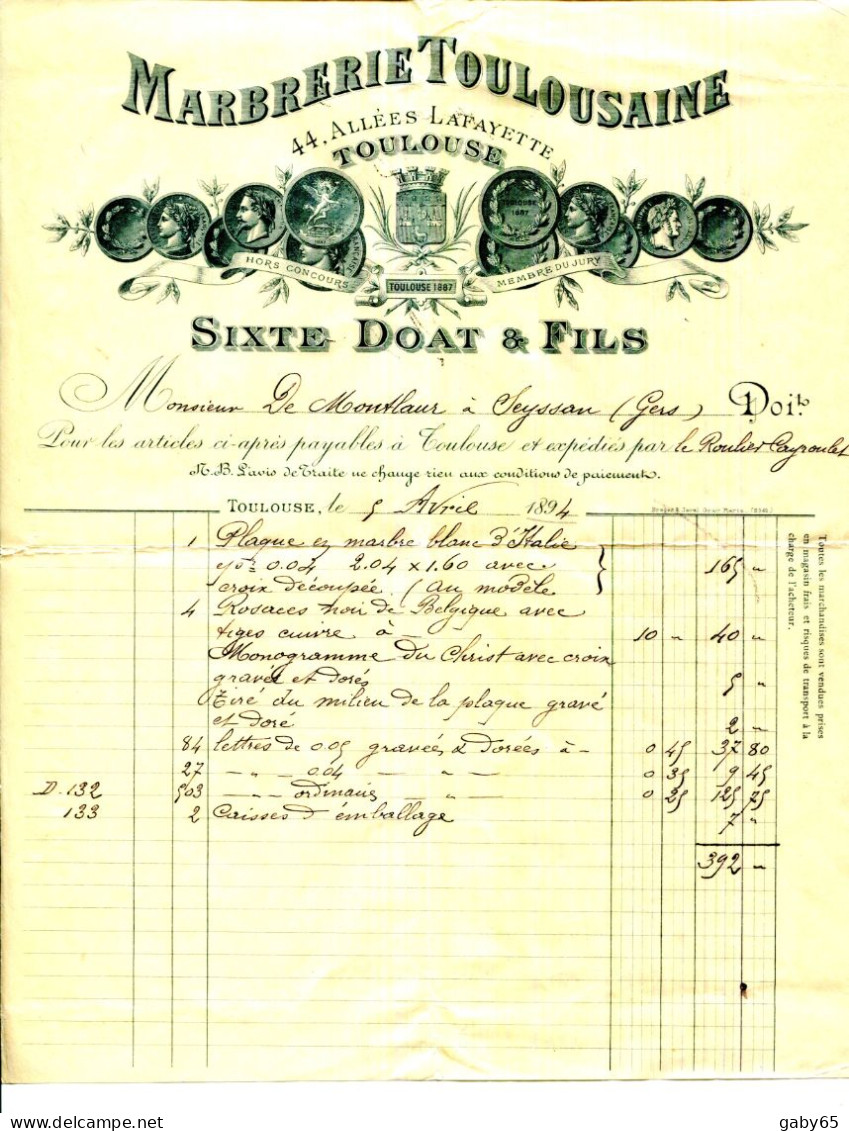 MARBRERIE TOULOUSAINE
44, ALLÉES LAFAYETTE
TOULOUSE
TOULOUSE 1887
HORS CONCOURS
TOULOUSE 1887
MEMBRE DU JURY
SIXTE DOAT & FILS
Monsieur De Montlaur à Seyssan (Gers) Doit
Pour les articles ci-après payables à Toulouse et expédiés par le Roulier Cayroulet
N.B. L'avis de Traite ne change rien aux conditions de paiement.
TOULOUSE, le 5 Avril 1894
1 Plaque en marbre blanc d'Italie
0.04 2.04 x 1.60 avec
croix découpée (au modèle } 165 "
4 Rosaces noir de Belgique avec
tiges cuivre à — 10 " 40 "
Monogramme du Christ avec croix
gravé et dorés 5 "
Tiré du milieu de la plaque gravé
et doré 2 "
84 lettres de 0.05 gravées & dorées à — 0 45 37 80
27 — " — 0.04 — " — " — 0 35 9 45
D. 132 503 — " — ordinaires — " — 0 25 125 75
133 2 Caisses d'emballage 7 "
392 "
Toutes les marchandises sont vendues prises
en magasin frais et risques de transport à la
charge de l'acheteur.
gaby65